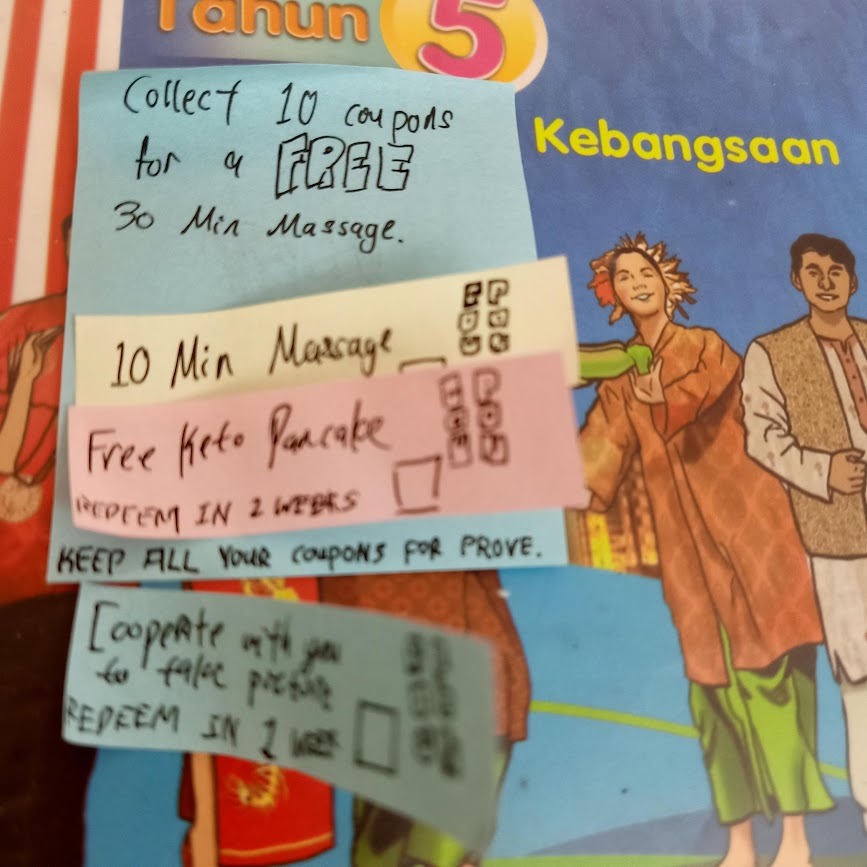 Tahun 5
Kebangsaan
Collect 10 coupons
for a FREE
30 Min Massage.
10 Min Massage
Free Keto Pancake
REDEEM IN 2 WEEKS
KEEP ALL YOUR COUPONS FOR PROVE.
Cooperate with you
to take picture
REDEEM IN 2 WEEK